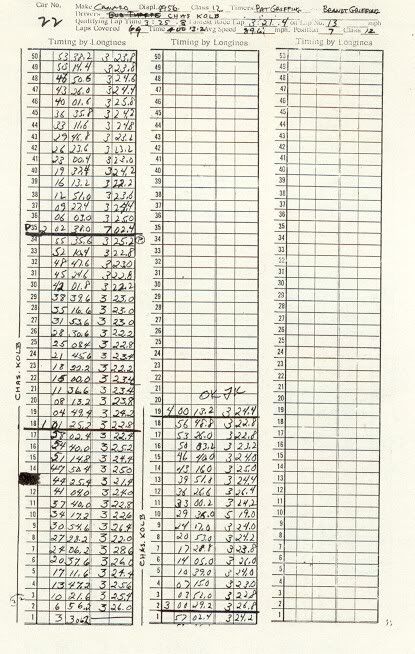 Car No. 22 Make Camaro Displ. 4956 Class 12 Timers PAT GRIFFING BRANDT GRIFFING
Drivers CHAS KOLB
Qualifying Lap Time 3-25 8 Fastest Race Lap 3 21. 4 on Lap No. 13 mph
Laps Covered 69 Time 4 00 13.2 Avg Speed 89.61 mph. Position 7 Class 12
Timing by Longines Timing by Longines Timing by Longines
50 53 38.2 3 23.8 50 50
49 50 14.4 3 23.8 49 49
48 46 50.6 3 24.6 48 48
47 43 26.0 3 24.4 47 47
46 40 01.6 3 25.8 46 46
45 36 35.8 3 24.2 45 45
44 33 11.6 3 24.8 44 44
43 29 46.8 3 23.2 43 43
42 26 23.6 3 23.2 42 42
41 23 00.4 3 23.0 41 41
40 19 37.4 3 24.2 40 40
39 16 13.2 3 22.2 39 39
38 12 51.0 3 23.6 38 38
37 09 27.4 3 24.4 37 37
36 06 03.0 3 25.0 36 36
P 35 2 02 38.0 7 02.4 35 35
34 55 35.6 3 25.2 P 34 34
33 52 10.4 3 22.8 33 33
32 48 47.6 3 23.0 32 32
31 45 24.6 3 22.8 31 31
30 42 01.8 3 22.2 30 30
29 38 39.6 3 23.0 29 29
28 35 16.6 3 23.0 28 28
27 31 53.6 3 23.0 27 27
26 28 30.6 3 22.2 26 26
25 25 08.4 3 22.8 25 25
24 21 45.6 3 23.4 24 24
23 18 22.2 3 22.2 23 23
22 15 00.0 3 23.4 22 22
21 11 36.6 3 23.4 21 21
20 08 13.2 3 23.8 20 OK JK 20
19 04 49.4 3 24.2 19 4 00 13.2 3 24.4 19
18 1 01 25.2 3 22.8 18 56 48.8 3 22.8 18
17 58 02.4 3 22.4 17 53 26.0 3 22.8 17
16 54 40.0 3 25.2 16 50 03.2 3 23.2 16
15 51 14.8 3 24.4 15 46 40.0 3 24.0 15
14 47 50.4 3 25.0 14 43 16.0 3 25.0 14
44 25.4 3 21.4 13 39 51.0 3 24.4 13
12 41 04.0 3 24.0 12 36 26.6 3 26.4 12
11 37 40.0 3 22.8 11 33 00.2 3 24.2 11
10 34 17.2 3 22.6 10 29 36.0 5 19.0 10
9 30 54.6 3 26.4 9 24 17.0 3 24.0 9
8 27 28.2 3 22.0 8 20 53.0 3 24.2 8
7 24 06.2 3 28.6 7 17 28.8 3 23.8 7
6 20 37.6 3 26.0 6 14 05.0 3 26.0 6
5 17 11.6 3 24.4 5 10 39.0 3 24.0 5
4 13 47.2 3 25.6 4 07 15.0 3 23.0 4
3 10 21.6 3 25.4 3 03 52.0 3 22.8 3
2 6 56.2 3 26.0 2 3 00 29.2 3 26.8 2
1 3 30.2 1 57 02.4 3 24.2 1
CHAS. KOLB
CHAS. KOLB